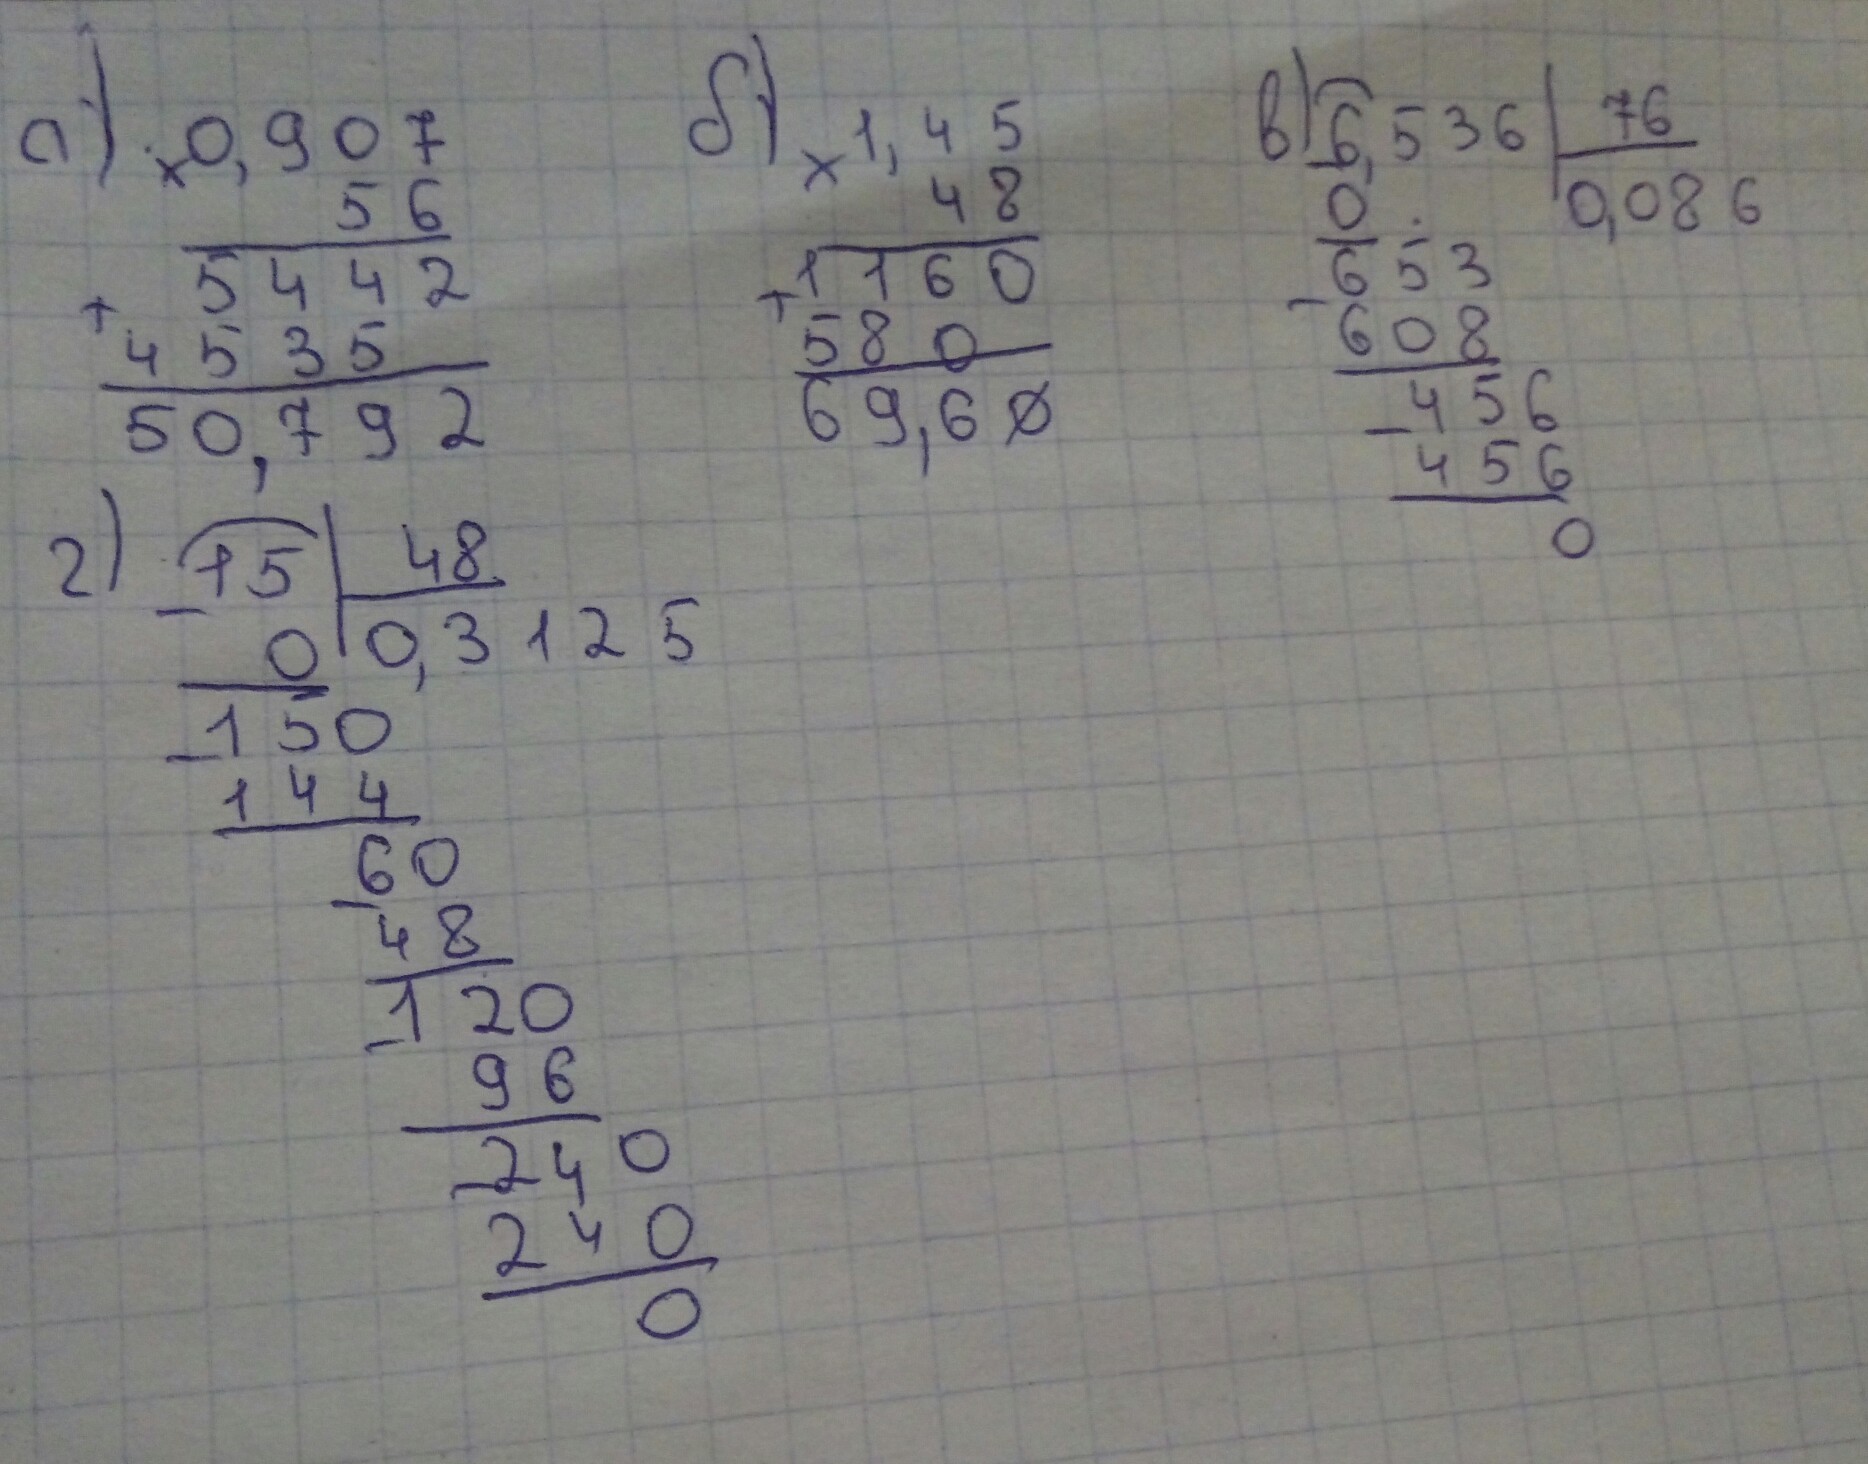 а) × 0,907
56
5442
+ 4535
50,792
б) × 1,45
48
1160
+ 580
69,60
в) 6,536 | 76
0 | 0,086
653
- 608
- 456
456
0
г) - 15 | 48
0 | 0,3125
- 150
144
- 60
48
- 120
96
- 240
240
0